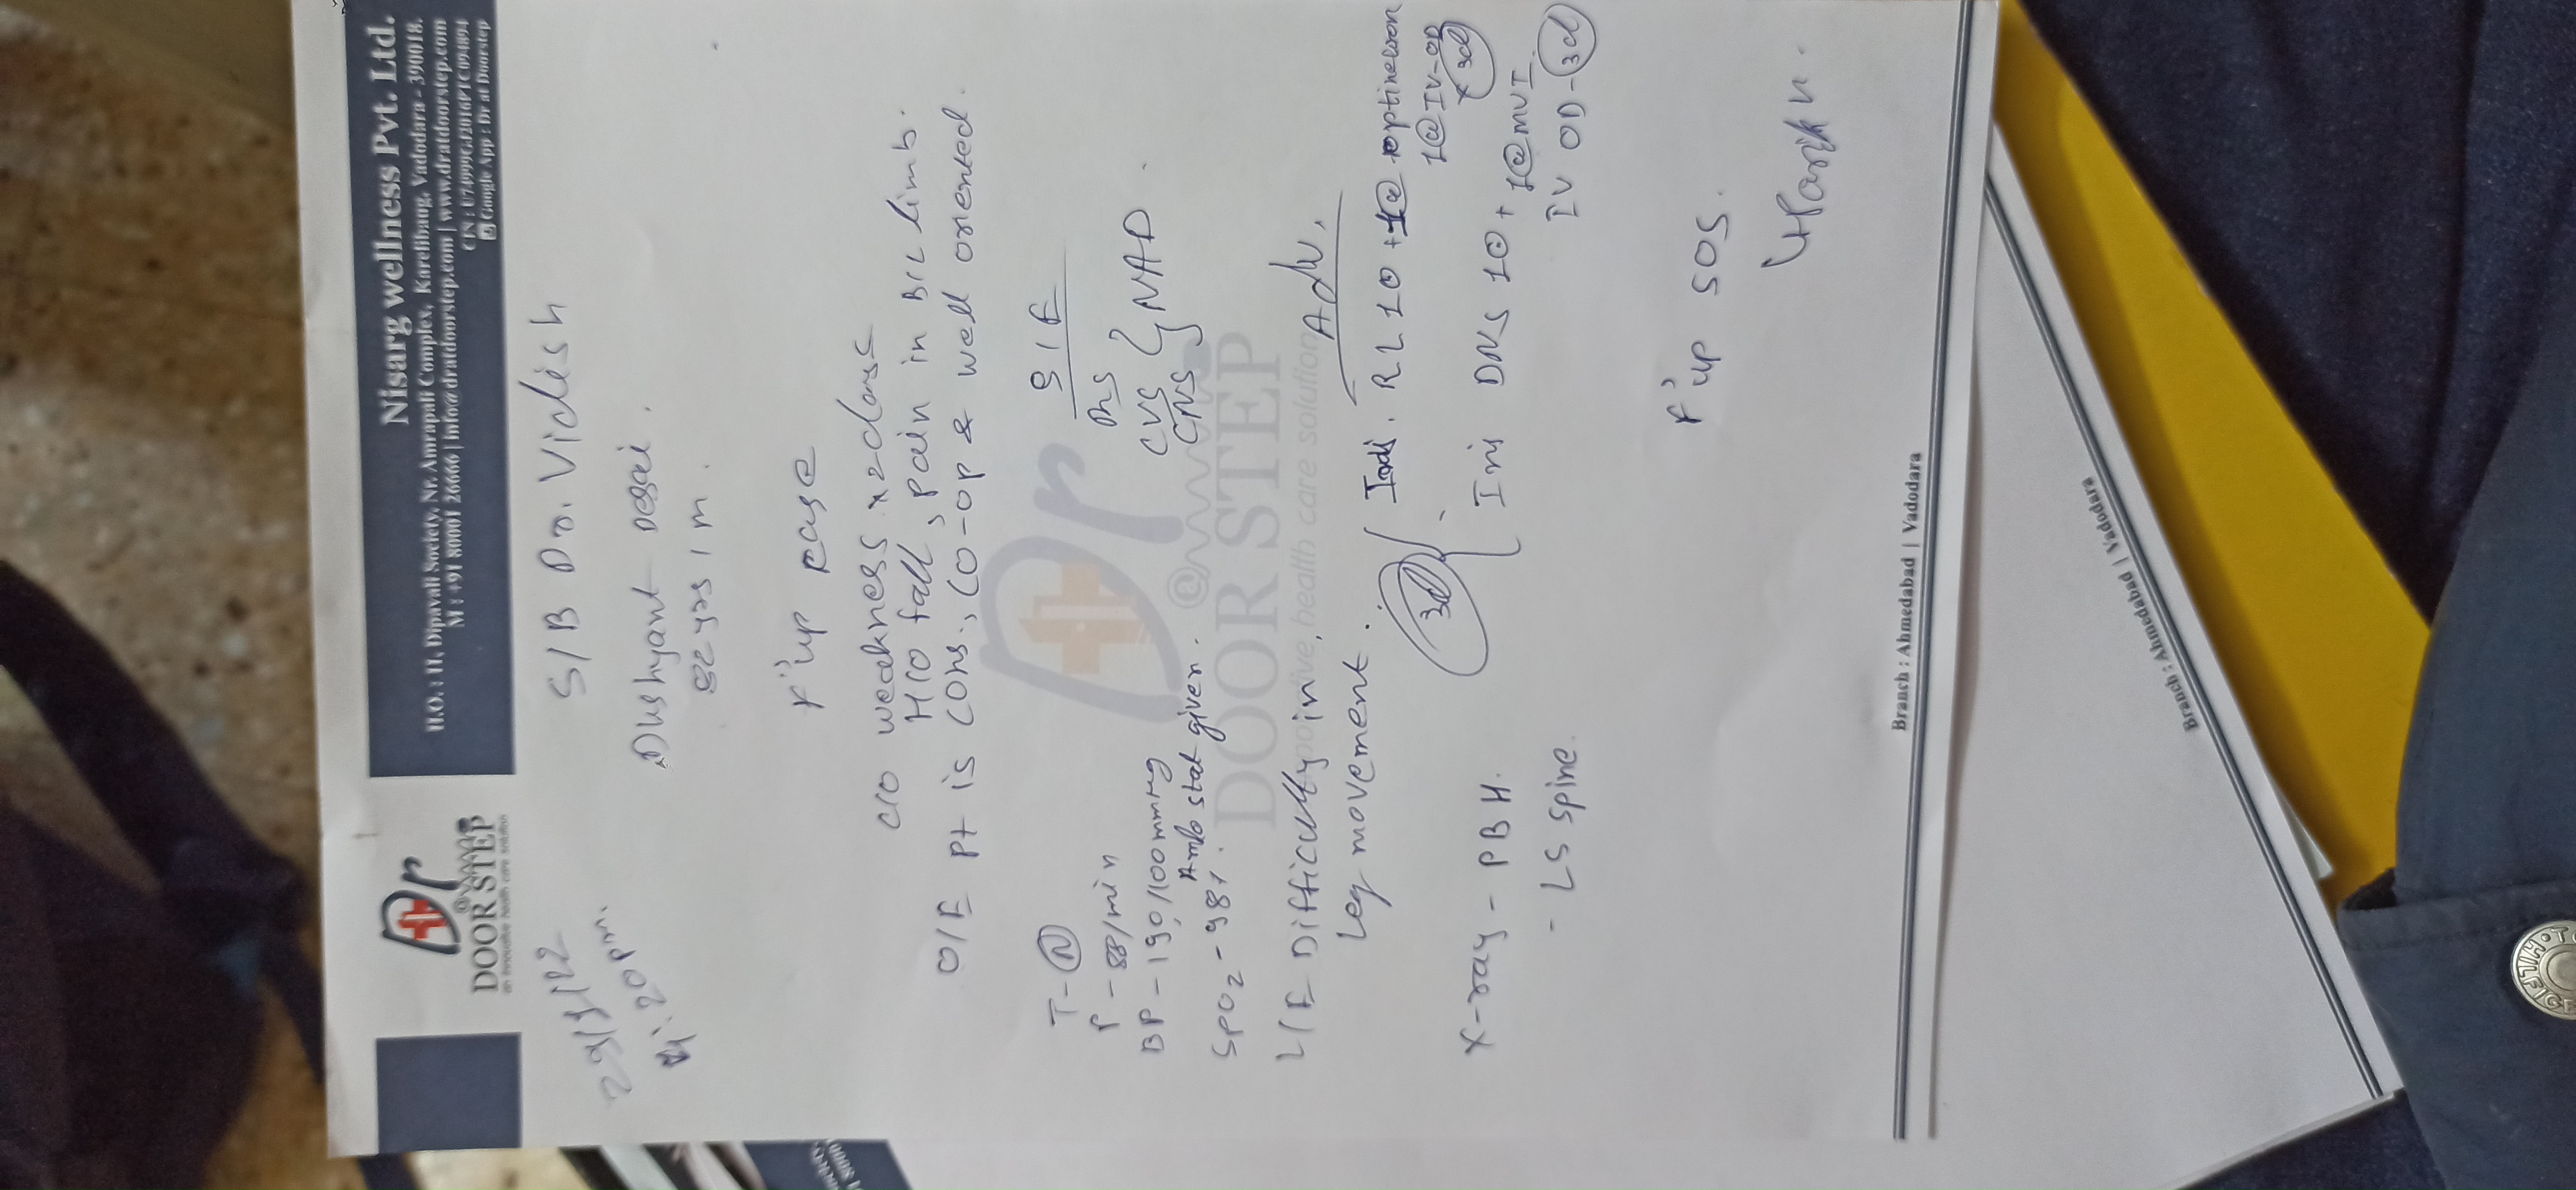 Dr
@
DOOR STEP
an innovative health care solution
Nisarg wellness Pvt. Ltd.
H.O. : 11, Dipavali Society, Nr. Amrapali Complex, Karelibaug, Vadodara - 390018.
M : +91 80001 26666 | info@dratdoorstep.com | www.dratdoorstep.com
CIN : U74999GJ2016PTC094894
Google App : Dr at Doorstep
29/1/22
4:20pm.
S/B Dr. Vidish
Dushyant Desai.
82 yrs / m.
F'up case
C/O weakness x 2 days
H/O fall, pain in B/L limb.
O/E Pt is cons., co-op & well oriented.
T - N
P - 88/min
BP - 190/100 mmHg
Amlo stat given.
SpO2 - 98%.
S/E
RS
CVS } NAD
CNS
L/E Difficulty in
Leg movement.
Adv.
3d
RL 1 + 1 optineuron
1 IV-OD
x 3d
X-ray - PBH.
- LS spine.
Inj DNS 1 +
1 MVI
IV OD - 3d
F'up SOS.
Dr
@
DOOR STEP
innovative health care solution
Branch : Ahmedabad | Vadodara
Branch : Ahmedabad | Vadodara